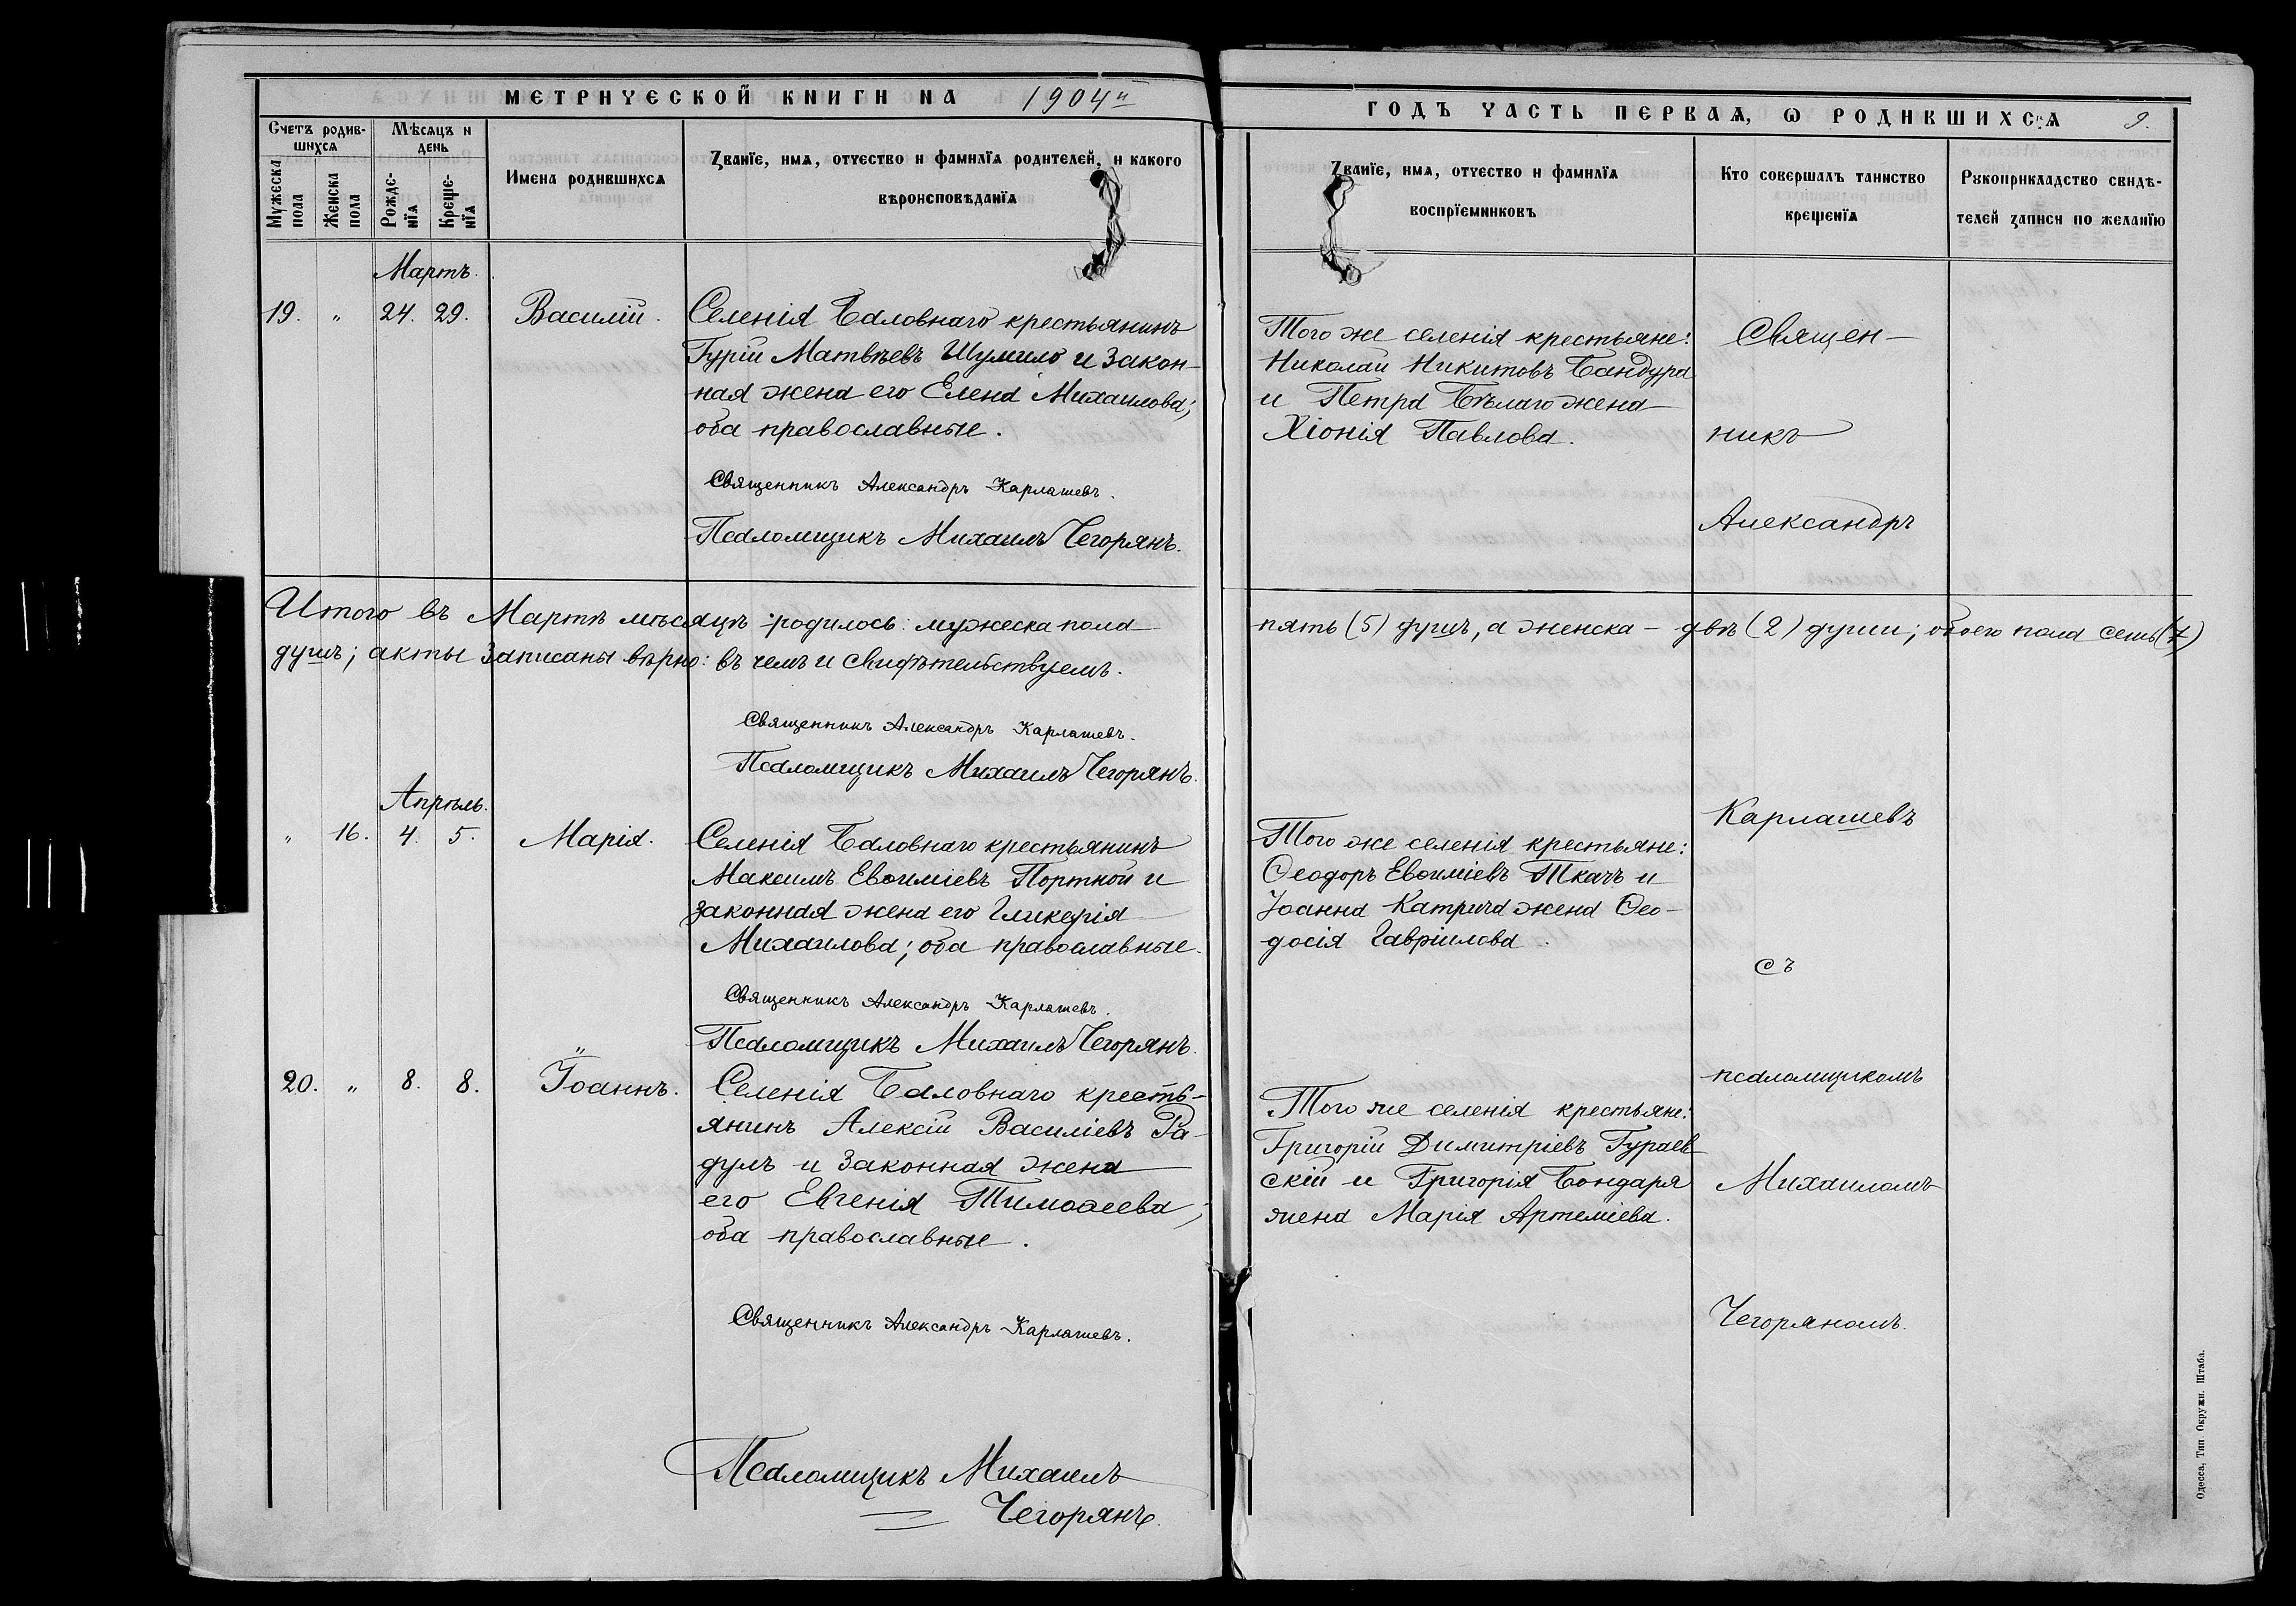 МЕТРИЧЕСКОЙ КНИГИ НА 1904й
Счетъ родив-
шихся
Мѣсяцъ и
день
Мужеска
пола
Женска
пола
Рожде-
нїя
Креще-
нїя
Имена родившихся
Званїе, имя, отчество и фамилїя родителей, и какого
вѣроисповѣданїя
Мартъ.
19. " 24. 29. Василій.
Селенія Баловнаго крестьянинъ
Гурій Матвѣевъ Шумило и закон-
ная жена его Елена Михаилова;
оба православные.
Священникъ Александръ Карлашевъ.
Псаломщикъ Михаилъ Чегорянъ.
Итого въ Мартѣ мѣсяцѣ родилось: мужеска пола
душъ; акты записаны вѣрно: въ чемъ и свидѣтельствуемъ.
Священникъ Александръ Карлашевъ.
Псаломщикъ Михаилъ Чегорянъ.
Апрѣль.
" 16. 4. 5. Марія.
Селенія Баловнаго крестьянинъ
Максимъ Евѳиміевъ Портной и
законная жена его Гликерія
Михаилова; оба православные.
Священникъ Александръ Карлашевъ.
Псаломщикъ Михаилъ Чегорянъ.
20. " 8. 8. Іоаннъ.
Селенія Баловнаго кресть-
янинъ Алексій Василіевъ Ра-
дулъ и законная жена
его Евгенія Тимоѳеева;
оба православные.
Священникъ Александръ Карлашевъ.
Псаломщикъ Михаилъ
Чегорянъ.
ГОДЪ ЧАСТЬ ПЕРВАЯ, Ѡ РОДИВШИХСЯ 9.
Званїе, имя, отчество и фамилїя
воспрїемниковъ
Кто совершалъ таинство
крещенїя
Рукоприкладство свидѣ-
телей записи по желанїю
Того же селенія крестьяне:
Николай Никитовъ Бандура
и Петра Бѣлаго жена
Хіонія Павлова.
Священ-
никъ
Александръ
пять (5) душъ, а женска - двѣ (2) души; обоего пола семь (7)
Карлашевъ
Того же селенія крестьяне:
Ѳеодоръ Евѳиміевъ Ткачъ и
Іоанна Катрича жена Ѳео-
досія Гавріилова.
съ
псаломщикомъ
Того же селенія крестьяне:
Григорій Димитріевъ Гураев
скій и Григорія Бондаря
жена Марія Артеміева.
Михаиломъ
Чегоряномъ.
Одесса, Тип. Окружн. Штаба.